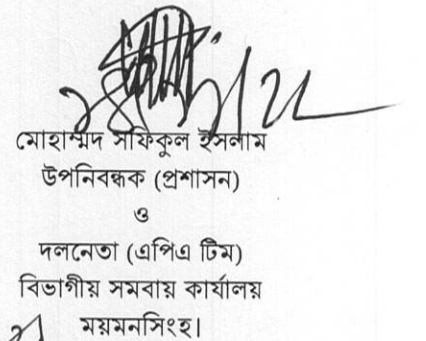 মোহাম্মদ সফিকুল ইসলাম
উপনিবন্ধক (প্রশাসন)
ও
দলনেতা (এপিএ টিম)
বিভাগীয় সমবায় কার্যালয়
ময়মনসিংহ।